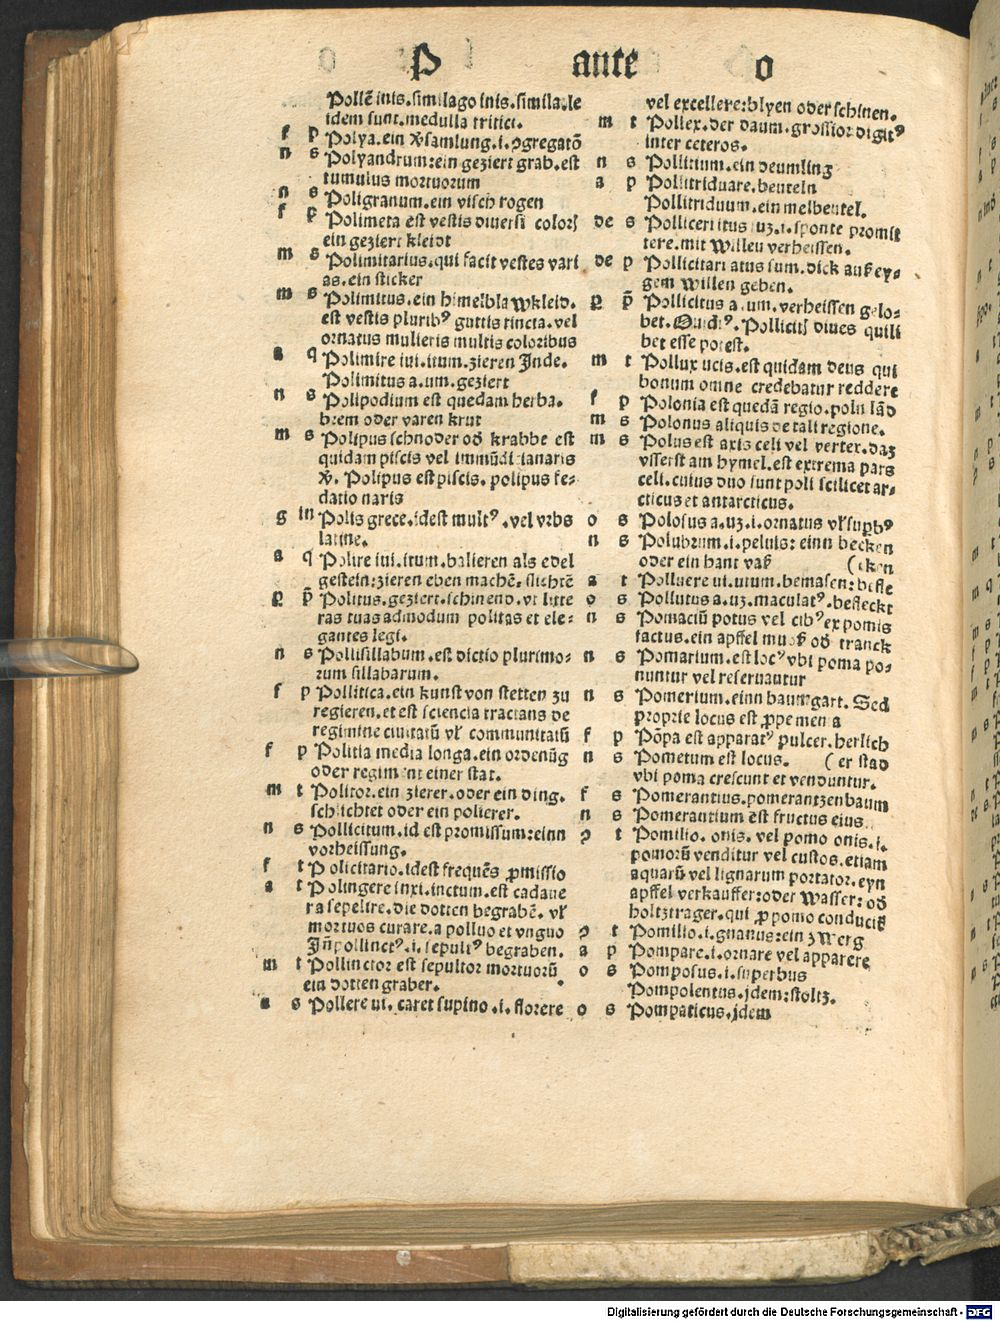 P ante o
Pollē inis.similago inis.simila.le
idem sunt.medulla tritici.
f p Polya.ein v̄samlung.i.ꝯgregatō
n s Polyandrum:ein geziert grab.est
tumulus mortuorum
n s Poligranum.ein visch rogen
f p Polimeta est vestis diuersi coloris
ein geziert kleidt
m s Polimitarius.qui facit vestes vari
as.ein sticker
m s Polimitus.ein himelblawkleid.
est vestis pluribꝰ guttis tincta.vel
ornatus mulieris multis coloribus
a q Polimire iui.itum.zieren Inde.
Polimitus a.um.geziert
n s Polipodium est quedam herba.
brem oder varen krut
m s Polipus schnoder od̄ krabbe est
quidam piscis vel immūdicia naris
v̄. Polipus est piscis. polipus fe-
datio naris
g in Polis grece.idest multꝰ.vel vrbs
latine.
a q Polire iui.itum.balieren als edel
gestein:zieren eben machē.slichtē
p p̄ Politus.geziert.schinend.vt litte
ras tuas admodum politas et ele-
gantes legi.
n s Pollisillabum.est dictio plurimo-
rum sillabarum.
f p Pollitica.ein kunst von stetten zu
regieren.et est sciencia tractans de
regimine ciuitatū vł communitatū
f p Politia media longa.ein ordenūg
oder regiment einer stat.
m t Politor.ein zierer.oder ein ding.
schlichtet oder ein polierer.
n s Pollicitum.id est promissum:einn
vorheissung.
f t Policitatio.idest frequēs ꝓmissio
a t Polingere inxi.inctum.est cadaue
ra sepelire.die dotten begrabē. vł
mortuos curare.a polluo et vnguo
Iñ pollinctꝰ.i.sepultꝰ begraben.
m t Pollinctor est sepultor mortuorū
ein dotten graber.
a s Pollere ui. caret supino.i. florere
vel excellere:blyen oder schinen.
m t Pollex.der daum.grossior digitꝰ
inter ceteros.
n s Pollitium.ein deumling
a p Pollitriduare.beuteln
Pollitriduum.ein melbeutel.
de s Polliceri itus uz.i.sponte promit
tere.mit willen verheissen.
de p Pollicitari atus sum.dick auß ey-
gem willen geben.
p p̄ Pollicitus a.um.verheissen gelo-
bet. Ouidiꝰ. Pollicitis diues quili
bet esse potest.
m t Pollux ucis.est quidam deus qui
bonum omne credebatur reddere
f p Polonia est quedā regio.poln lād
m s Polonus aliquis de tali regione.
m s Polus est axis celi vel vertex.daz
vsserst am hymel.est extrema pars
celi.cuius duo sunt poli scilicet ar-
cticus et antarcticus.
o s Polosus a.uz.i.ornatus vł supbꝰ
n s Polubrum.i.peluis: einn becken
oder ein hant vaß (cken
a t Polluere ui.utum.bemasen:befle
o s Pollutus a.uz.maculatꝰ.befleckt
n s Pomaciū potus vel cibꝰ ex pomis
factus.ein apffel muß od̄ tranck
n s Pomarium.est locꝰ vbi poma po-
nuntur vel reseruantur
n s Pomerium.einn baumgart. Sed
proprie locus est ꝓpe menia
f p Pōpa est apparatꝰ pulcer.herlich
n s Pometum est locus. (er stad
vbi poma crescunt et venduntur.
f s Pomerantius.pomerantzenbaum
n s Pomerantium est fructus eius.
ꝯ t Pomilio. onis. vel pomo onis.i.
pomorū venditur vel custos.etiam
aquarū vel lignarum portator.eyn
apffel verkauffer:oder wasser: od̄
holtztrager.qui ꝓ pomo conducit̄
ꝯ t Pomilio.i.gnanus:ein zwerg
a p Pompare.i.ornare vel apparere
o s Pomposus.i.superbus
Pompolentus.jdem:stoltz.
o s Pompaticus.jdem
Digitalisierung gefördert durch die Deutsche Forschungsgemeinschaft - DFG